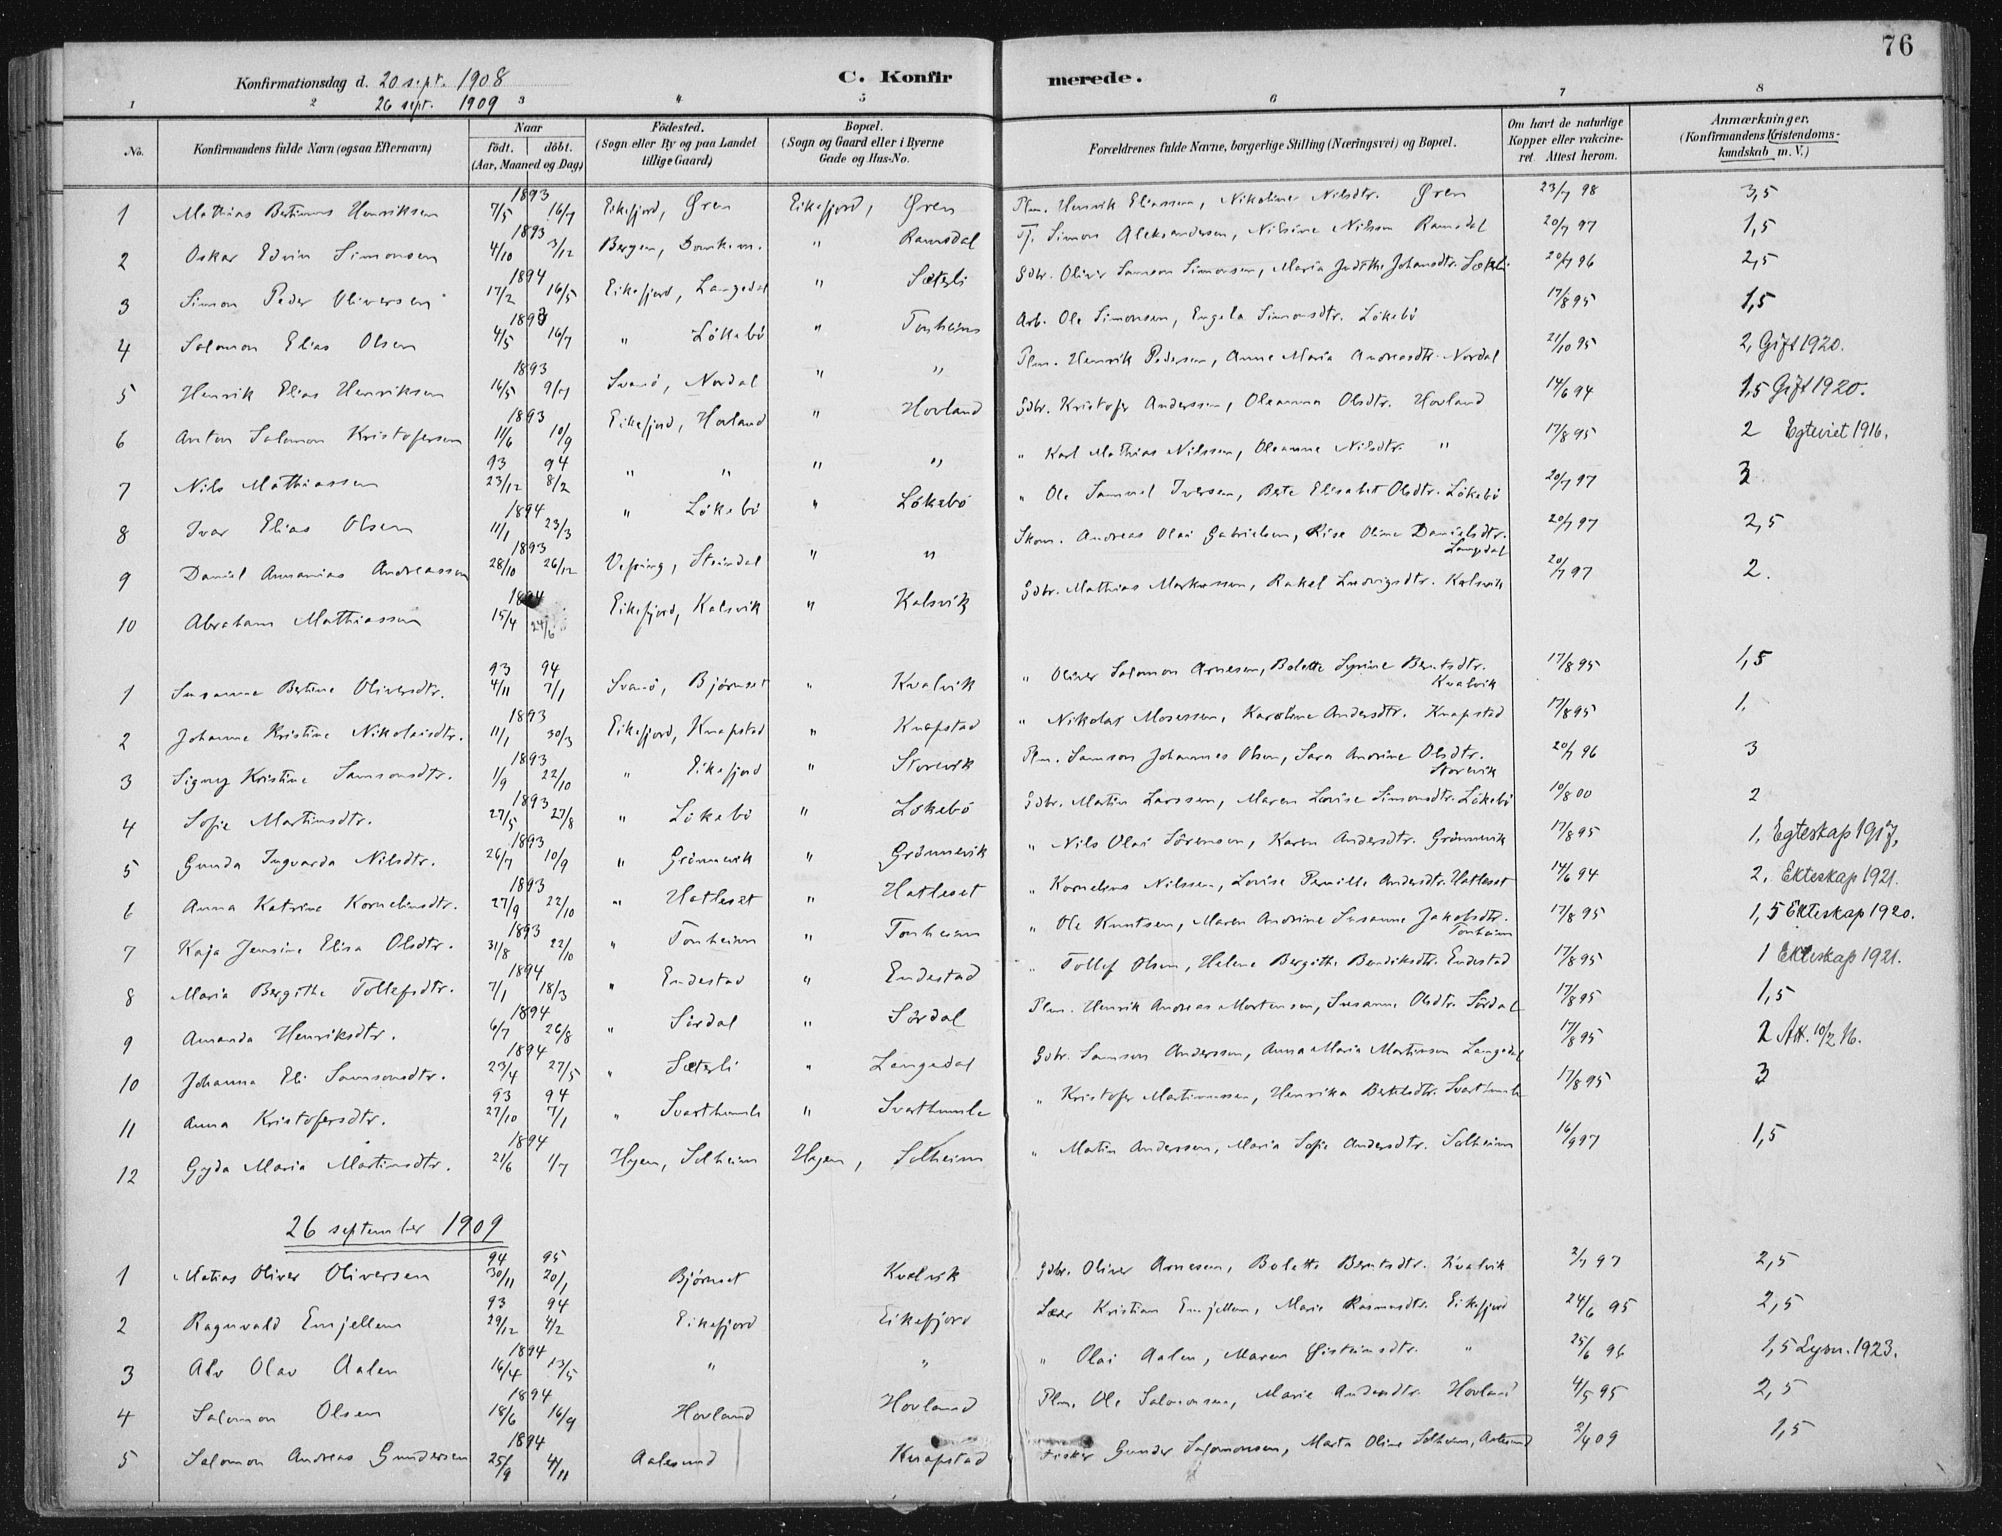 76
Konfirmationsdag d. 20 sept. 1908
26 sept. 1909
C. Konfirmerede.
1 2 3 4 5 6 7 8
No. Konfirmandens fulde Navn (ogsaa Efternavn) Naar födt. döbt. (Aar, Maaned og Dag) Födested. (Sogn eller By og paa Landet tillige Gaard) Bopæl. (Sogn og Gaard eller i Byerne Gade og Hus-No. Forældrenes fulde Navne, borgerlige Stilling (Næringsvei) og Bopæl. Om havt de naturlige Kopper eller vakcineret Attest herom. Anmærkninger. (Konfirmandens Kristendomskundskab m. V.)
1 Mathias Bertinus Henriksen 1893 7/5 16/7 Eikefjord, Øren Eikefjord, Øren Plm. Henrik Eliassen, Nikoline Nilsdtr. Øren 23/7 98 3,5
2 Oskar Edvin Simonsen 1893 4/10 3/12 Bergen, Domkirk. " Ramsdal Tj. Simon Aleksandersen, Nilsine Nilssen Ramsdal 20/7 97 1,5
3 Simon Peder Oliversen 1894 17/2 16/5 Eikefjord, Langedal " Sæterli Gdbr. Oliver Samson Simonsen, Maria Judithe Johansdtr. Sæterli 20/7 96 2,5
4 Salomon Elias Olsen 1893 4/5 16/7 " Løkebö " Tonheim Arb. Ole Simonsen, Engela Simonsdtr. Lökebö 17/8 95 1,5
5 Henrik Elias Henriksen 1893 16/5 9/7 Svanö, Nordal " " Plm. Henrik Pedersen, Anne Maria Andreasdtr. Nordal 21/10 95 2, Gift 1920.
6 Anton Salomon Kristofersen 1893 11/6 10/9 Eikefjord, Hovland " Hovland Gdbr. Kristofer Anderssen, Oleanna Olsdtr. Hovland 14/6 94 1,5 Gift 1920.
7 Nils Mathiassen 93 23/12 94 8/2 " " " " " Karl Mathias Nilssen, Oleanna Nilsdtr. " 17/8 95 2 Egteviet 1916.
8 Ivar Elias Olsen 1894 11/1 23/3 " Lökebö " Lökebö " Ole Samuel Iversen, Berte Elisabet Olsdtr. Lökebö 20/7 97 3
9 Daniel Annanias Andreassen 1893 28/10 26/12 Vefring, Steindal " " Skom. Andreas Olai Gabrielsen, Lise Oline Danielsdtr. Langedal 20/7 97 2,5
10 Abraham Matthiassen 1894 15/4 24/6 Eikefjord, Kalsvik " Kalsvik Gdbr. Mathias Markussen, Rakel Ludvigsdtr. Kalsvik 20/7 97 2.
1 Susanne Bertine Oliversdtr. 93 4/11 94 7/1 Svanö, Bjørnset " Kvalvik " Oliver Salomon Arnesen, Bolette Syrine Berntsdtr. Kvalvik 17/8 95 1,5
2 Johanne Kristine Nikolaisdtr. 1893 11/1 30/3 Eikefjord, Knapstad " Knapstad " Nikolai Mosessen, Karoline Andersdtr. Knapstad 17/8 95 1.
3 Signy Kristine Samsonsdtr. 1893 1/9 22/10 " Eikefjord " Storevik Plm. Samson Johannes Olsen, Sara Andrine Olsdtr. Storevik 20/7 96 3
4 Sofie Martinsdtr. 1893 27/5 27/8 " Lökebö " Lökebö Gdbr. Martin Larssen, Maren Lovise Simonsdtr. Lökebö 10/8 00 2
5 Gunda Ingvarda Nilsdtr. 1893 26/7 10/9 " Grönnevik " Grönnevik " Nils Olai Sörensen, Karen Andersdtr. Grönnevik 17/8 95 1, Egteskap 1917,
6 Anna Katrine Korneliusdtr. 1893 27/9 22/10 " Hatleset " Hatleset " Kornelius Nilssen, Lovise Pernille Andersdtr. Hatleset 14/6 94 2, Ekteskap 1921.
7 Kaja Jensine Elisa Olsdtr. 1893 31/8 22/10 " Tonheim " Tonheim " Ole Knutsen, Maren Andrine Susanne Jakobsdtr. Tonheim 17/8 95 1,5 Ekteskap 1920.
8 Maria Bergithe Tollefsdtr. 1894 7/1 18/3 " Endestad " Endestad " Tollef Olsen, Helene Bergithe Bendiksdtr. Endestad 17/8 95 1 Ekteskap 1921.
9 Amanda Henriksdtr. 1894 6/7 26/8 " Sördal " Sördal Plm. Henrik Andreas Mortensen, Susanne Olsdtr. Sördal 17/8 95 1,5
10 Johanna Eli Samsonsdtr. 1894 23/4 27/5 " Sæterli " Langedal Gdbr. Samson Andersson, Anna Maria Martinsen Langedal 17/8 95 2 Att. 10/2 16.
11 Anna Kristofersdtr. 93 27/10 94 7/1 " Svarthumle " Svarthumle " Kristofer Martinussen, Henrika Bertelsdtr. Svarthumle 17/8 95 3
12 Gyda Maria Martinsdtr. 1894 21/6 1/7 Hyen, Solheim Hyen, Solheim " Martin Anderssen, Maria Sofie Andersdtr. Solheim 16/9 97 1,5
26 september 1909
1 Matias Oliver Oliversen 94 30/11 95 20/1 Bjørnset Kvalvik Gdbr. Oliver Arnesen, Bolette Berntsdtr. Kvalvik 2/7 97 2,5
2 Ragnvald Emjellem 93 29/12 94 4/2 Eikefjord Eikefjord Lær Kristian Emjellem, Marie Rasmusdtr. Eikefjord 24/6 95 2,5
3 Alv Olav Aalen 1894 16/4 13/5 " " " Olai Aalen, Maren Øisteinsdtr. " 25/6 96 1,5 Lysn. 1923.
4 Salomon Olsen 1894 18/6 16/9 Hovland Hovland Plm. Ole Salomonsen, Marie Andersdtr. Hovland 4/5 95 2,5
5 Salomon Andreas Gundersen 1894 25/9 4/11 Aalesund Knapstad Fisker Gunder Salomonsen, Marta Oline Solheim, Aalesund 2/4 09 1,5